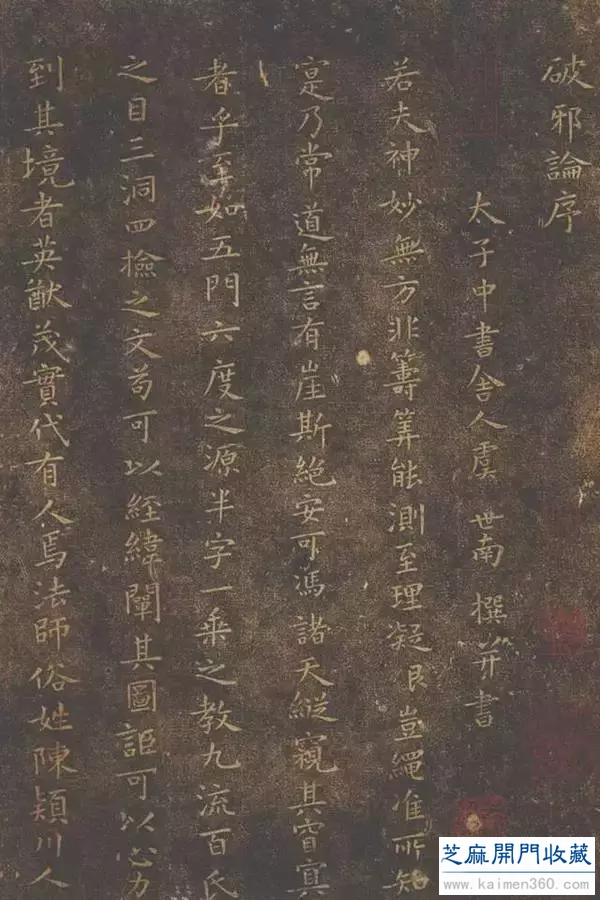 破邪論序
太子中書舍人虞世南撰并書
若夫神妙無方非籌筭能測至理凝豈繩准所知
寔乃常道無言有崖斯絕安可馮諸天縱窺其窅冥
者乎至如五門六度之源半字一乘之教九流百氏
之目三洞四撿之文苟可以經緯闡其圖詎可以心力
到其境者英猷茂實代有人焉法師俗姓陳潁川人
芝麻開門收藏
www.kaimen360.com